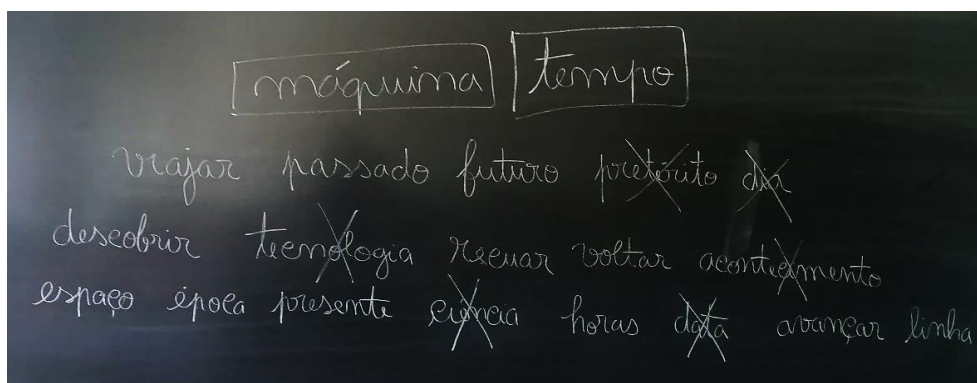 máquina tempo
viajar passado futuro pretérito dia
descobrir tecnologia recuar voltar acontecimento
espaço época presente ciência horas data avançar linha